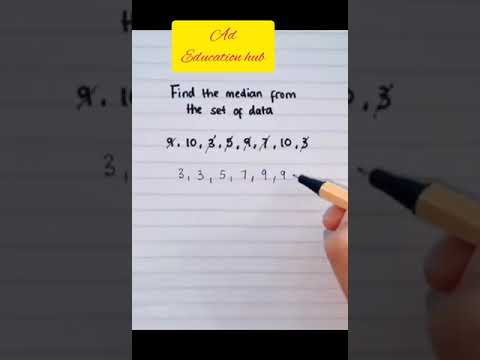 Ad
Education hub
Find the median from
the set of data
9, 10, 3, 5, 9, 7, 10, 3
3, 3, 5, 7, 9, 9